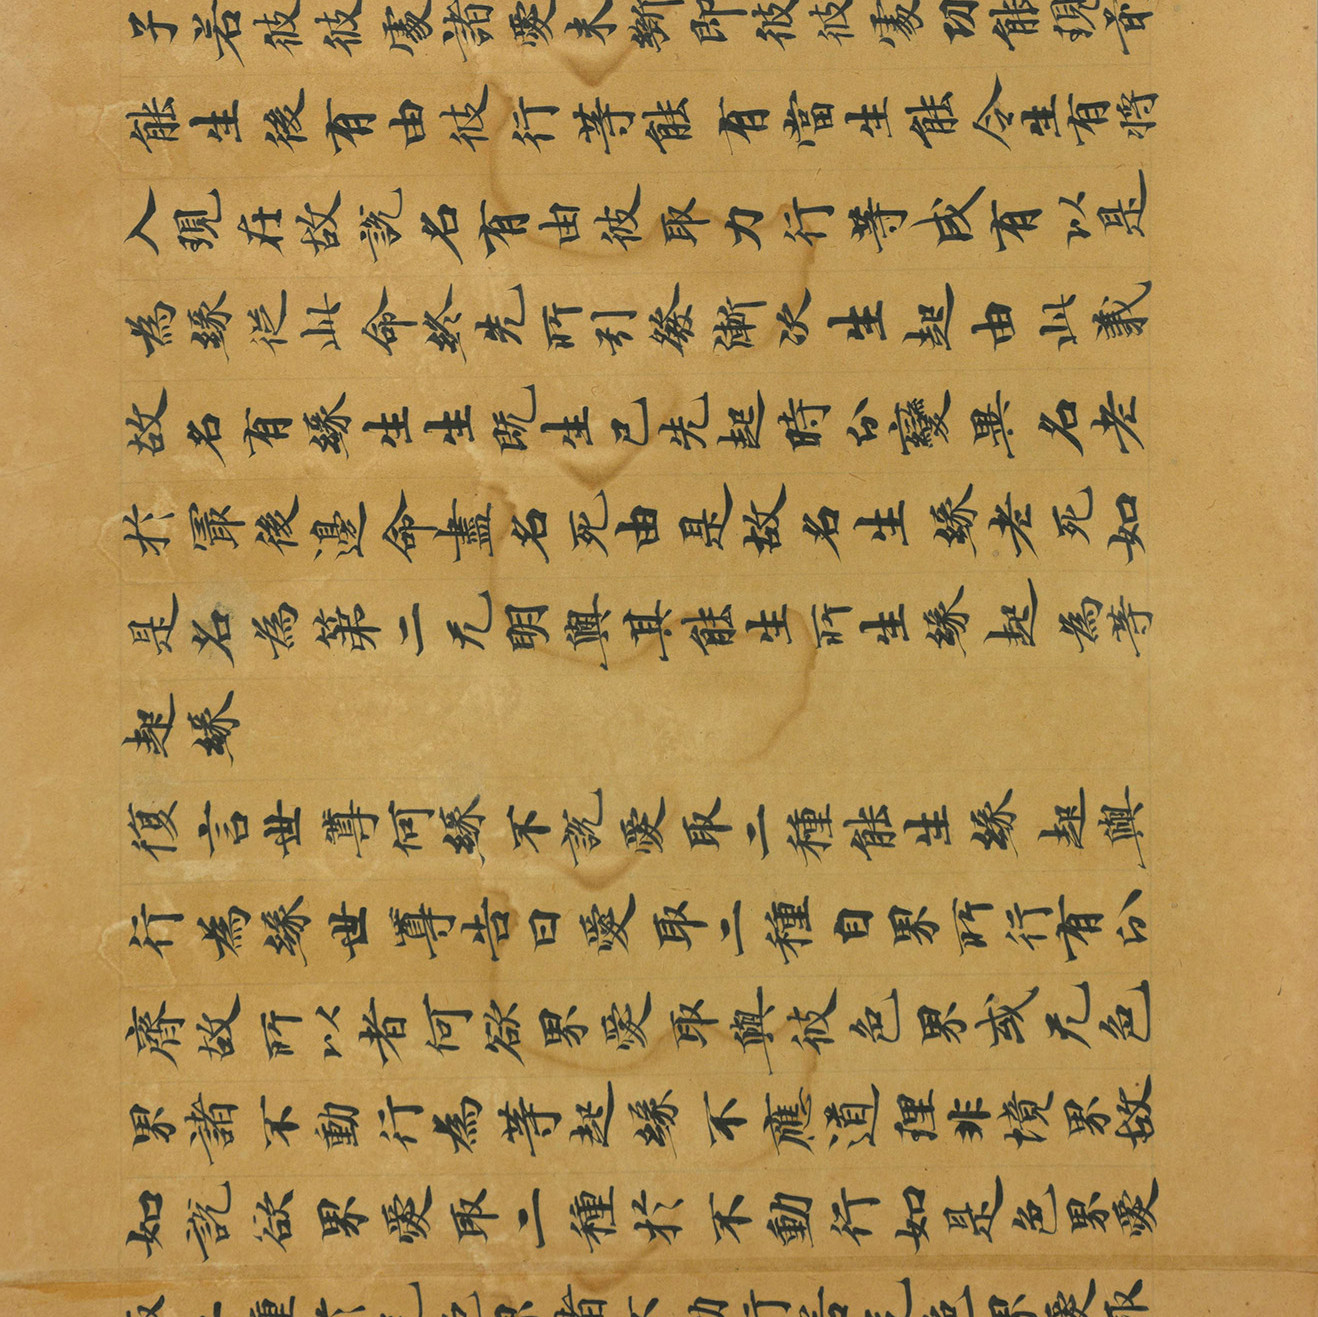 子若彼彼處諸愛未斷即彼彼處功能現前
能生後有由彼行等能有當生能令生有將
入現在故說名有由彼取力行等成有以是
為緣從此命終先所引發漸次生起由此義
故名有緣生生既生已先起時分變異名老
於冣後邊命盡名死由是故名生緣老死如
是名為第二无明與其能生所生緣起為等
起緣
復言世尊何緣不說愛取二種能生緣起與
行為緣世尊告曰愛取二種自果所行有分
齊故所以者何欲界愛取與彼色界或无色
界諸不動行為等起緣不應道理非境界故
如說欲界愛取二種於不動行如是色界愛
取二種於无色界諸不動行无色界愛取